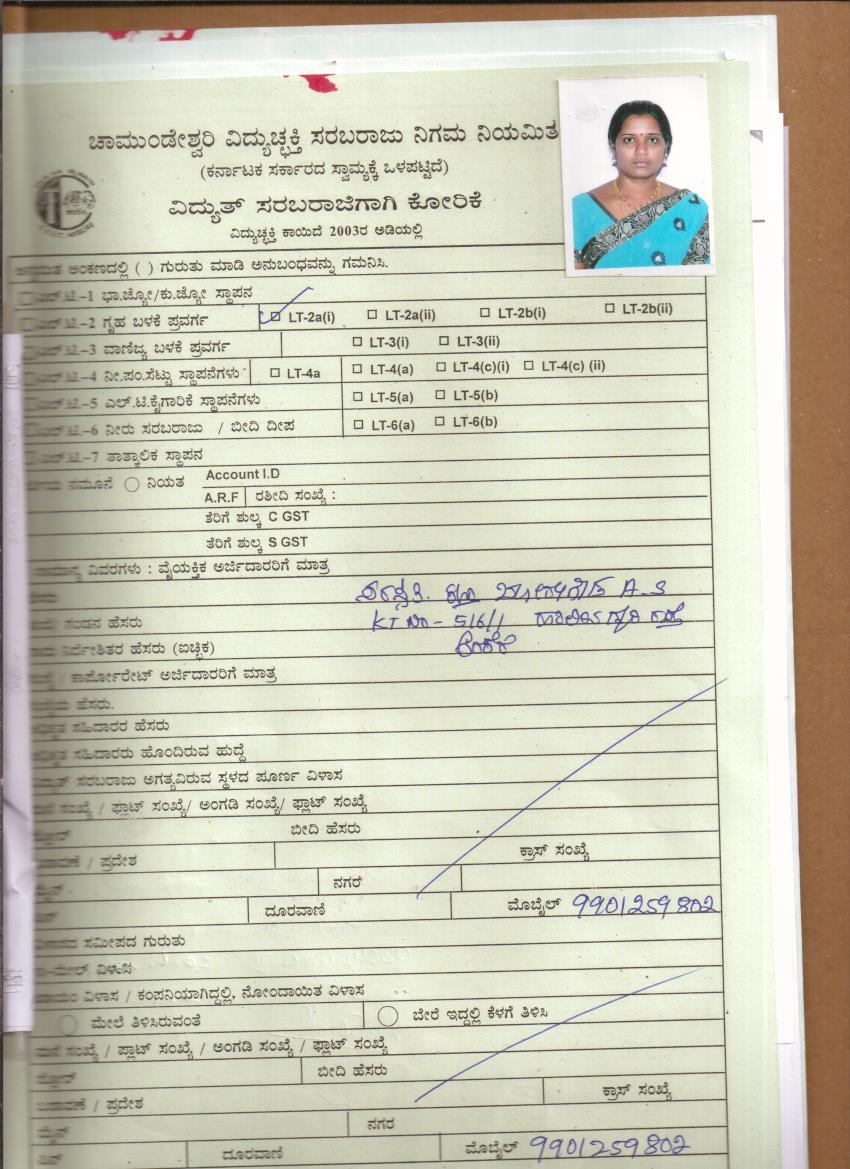 ಚಾಮುಂಡೇಶ್ವರಿ ವಿದ್ಯುಚ್ಛಕ್ತಿ ಸರಬರಾಜು ನಿಗಮ ನಿಯಮಿತ
(ಕರ್ನಾಟಕ ಸರ್ಕಾರದ ಸ್ವಾಮ್ಯಕ್ಕೆ ಒಳಪಟ್ಟಿದೆ)
ವಿದ್ಯುತ್ ಸರಬರಾಜಿಗಾಗಿ ಕೋರಿಕೆ
ವಿದ್ಯುಚ್ಛಕ್ತಿ ಕಾಯಿದೆ 2003ರ ಅಡಿಯಲ್ಲಿ
ಅಂಕಣದಲ್ಲಿ ( ) ಗುರುತು ಮಾಡಿ ಅನುಬಂಧವನ್ನು ಗಮನಿಸಿ.
ಎಲ್.ಟಿ.-1 ಭಾ.ಜ್ಯೋ/ಕು.ಜ್ಯೋ ಸ್ಥಾಪನ
ಎಲ್.ಟಿ.-2 ಗೃಹ ಬಳಕೆ ಪ್ರವರ್ಗ LT-2a(i) LT-2a(ii) LT-2b(i) LT-2b(ii)
ಎಲ್.ಟಿ.-3 ವಾಣಿಜ್ಯ ಬಳಕೆ ಪ್ರವರ್ಗ LT-3(i) LT-3(ii)
ಎಲ್.ಟಿ.-4 ನೀ.ಪಂ.ಸೆಟ್ಟು ಸ್ಥಾಪನೆಗಳು LT-4a LT-4(a) LT-4(c)(i) LT-4(c) (ii)
ಎಲ್.ಟಿ.-5 ಎಲ್.ಟಿ.ಕೈಗಾರಿಕೆ ಸ್ಥಾಪನೆಗಳು LT-5(a) LT-5(b)
ಎಲ್.ಟಿ.-6 ನೀರು ಸರಬರಾಜು / ಬೀದಿ ದೀಪ LT-6(a) LT-6(b)
ಎಲ್.ಟಿ.-7 ತಾತ್ಕಾಲಿಕ ಸ್ಥಾಪನ
ನಮೂನೆ ನಿಯತ Account I.D
A.R.F ರಶೀದಿ ಸಂಖ್ಯೆ :
ತೆರಿಗೆ ಶುಲ್ಕ C GST
ತೆರಿಗೆ ಶುಲ್ಕ S GST
ವಿವರಗಳು : ವೈಯಕ್ತಿಕ ಅರ್ಜಿದಾರರಿಗೆ ಮಾತ್ರ
A-S
ಗಂಡನ ಹೆಸರು KT 516/1
ನಿರ್ದೇಶಿತರ ಹೆಸರು (ಐಚ್ಛಿಕ)
/ ಕಾರ್ಪೋರೇಟ್ ಅರ್ಜಿದಾರರಿಗೆ ಮಾತ್ರ
ಹೆಸರು.
ಸಹಿದಾರರ ಹೆಸರು
ಸಹಿದಾರರು ಹೊಂದಿರುವ ಹುದ್ದೆ
ಸರಬರಾಜು ಅಗತ್ಯವಿರುವ ಸ್ಥಳದ ಪೂರ್ಣ ವಿಳಾಸ
ಸಂಖ್ಯೆ / ಫ್ಲಾಟ್ ಸಂಖ್ಯೆ/ ಅಂಗಡಿ ಸಂಖ್ಯೆ/ ಫ್ಲಾಟ್ ಸಂಖ್ಯೆ
ಬೀದಿ ಹೆಸರು
/ ಪ್ರದೇಶ ಕ್ರಾಸ್ ಸಂಖ್ಯೆ
ನಗರ
ದೂರವಾಣಿ ಮೊಬೈಲ್ 9901259802
ಸಮೀಪದ ಗುರುತು
ವಿಳಾಸ
ವಿಳಾಸ / ಕಂಪನಿಯಾಗಿದ್ದಲ್ಲಿ, ನೋಂದಾಯಿತ ವಿಳಾಸ
ಮೇಲೆ ತಿಳಿಸಿರುವಂತೆ ಬೇರೆ ಇದ್ದಲ್ಲಿ ಕೆಳಗೆ ತಿಳಿಸಿ
ಸಂಖ್ಯೆ / ಪ್ಲಾಟ್ ಸಂಖ್ಯೆ / ಅಂಗಡಿ ಸಂಖ್ಯೆ / ಫ್ಲಾಟ್ ಸಂಖ್ಯೆ
ಬೀದಿ ಹೆಸರು
/ ಪ್ರದೇಶ ಕ್ರಾಸ್ ಸಂಖ್ಯೆ
ನಗರ
ದೂರವಾಣಿ ಮೊಬೈಲ್ 9901259802